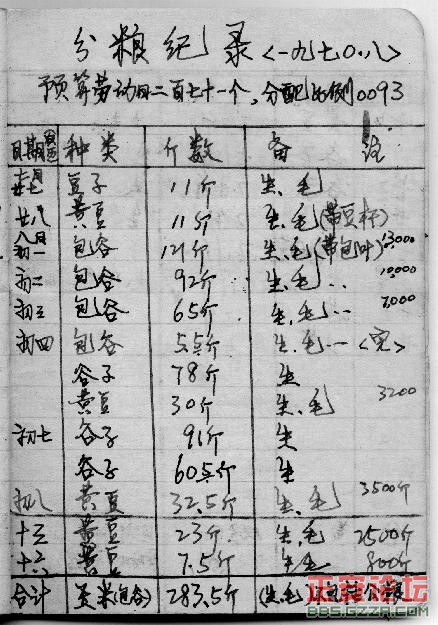 分粮纪录<一九七〇.八>
预算劳动日二百七十一个,分配比例0093
日期 种类 斤数 备注
豆子 11斤 生.毛
廿八 黄豆 11斤 生.毛(带豆杆)
八月初一 包谷 121斤 生.毛(带包叶) 13000
初二 包谷 92斤 生.毛.. 10,000
初三 包谷 65斤 生.毛.. 7,000
初四 包谷 55斤 生.毛.. <完>
谷子 78斤 生
黄豆 30斤 生.毛 3200
初七 谷子 91斤 生
谷子 60.5斤 生
初八 黄豆 32.5斤 生.毛 3500斤
十三 黄豆 23斤 生.毛 2500斤
十六 黄豆 7.5斤 生.毛 800斤
合计 包谷) 283.5斤 (生.毛
正荣论坛
BBS.GZZR.COM